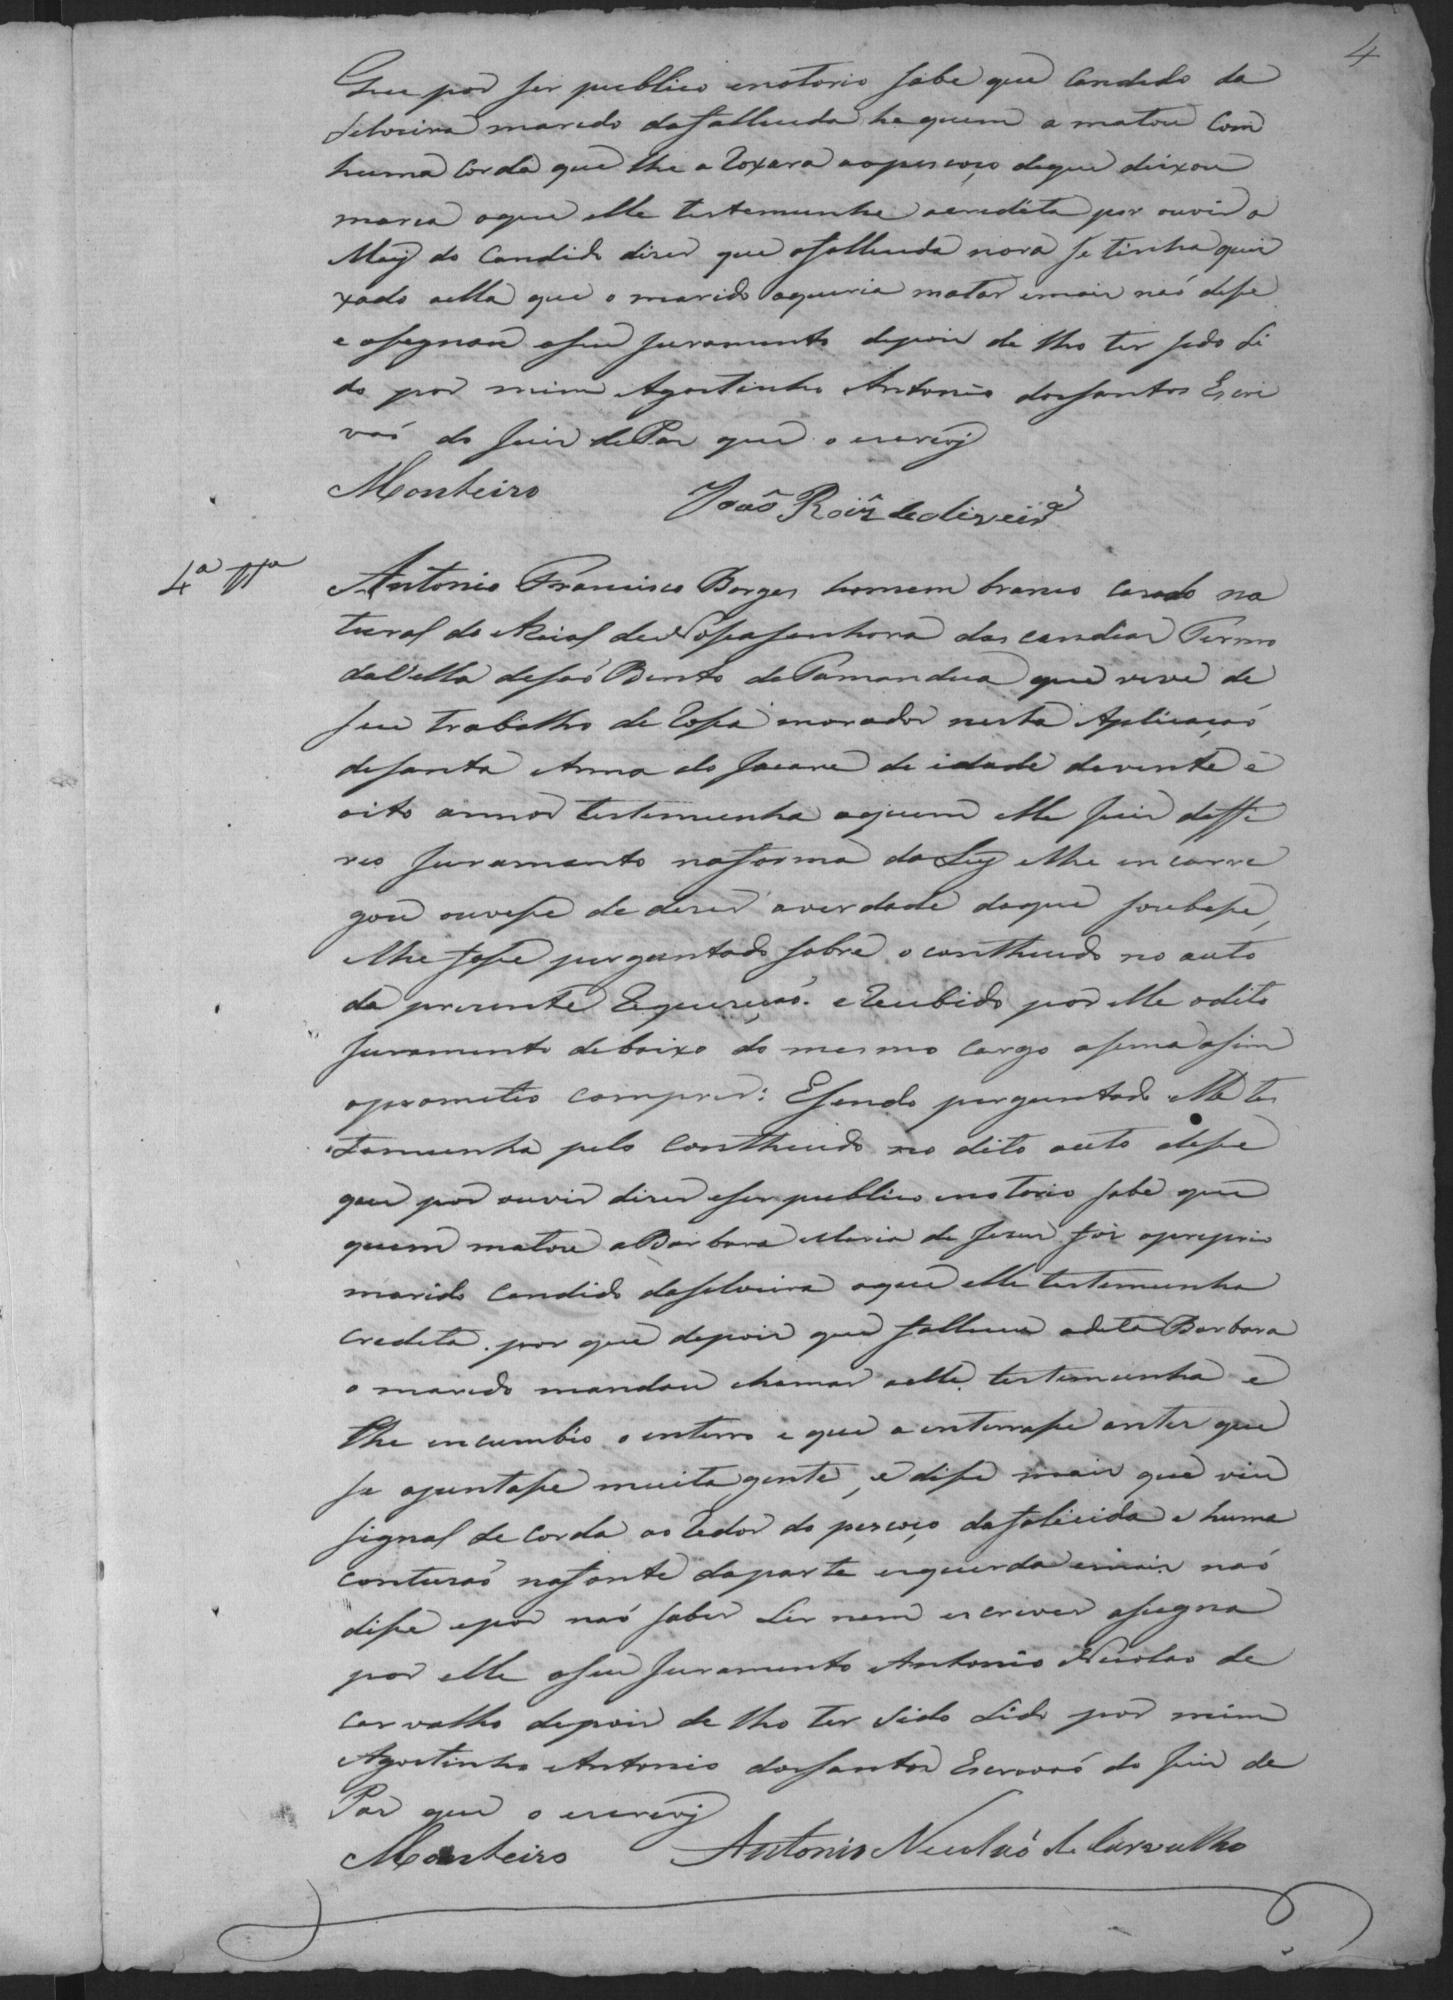 4
Que por ser publico enotorio sabe que Candido da
Silveira marido dafallecida he quem a matou com
huma corda que lhe a Roxara aopescoço deque deixou
marca oque elle testemunha acredita por ouvir a
May do Candido diser que afallecida nora se tinha quei
xado aella que o marido aqueria matar emais naõ disse
e assignou oseu juramento depois de lho ter sido Li
do por mim Agostinho Antonio dosSantos Escri
vaõ do Juis dePas que o escrevy
Monteiro João Roiz de oliveira
4ª tta
Antonio Francisco Borges homem branco casado na
tural do Arraial deNossasenhora das candias Termo
daVilla desaõ Bento do Tamandua que vive de
seu trabalho de Rossa morador nesta Aplicaçaõ
desanta Anna do Jacare de idade devinte e
oito annos testemunha aquem elle Juis deffi
rio Juramento naforma daLey elhe encarre
gou ouvesse de diser averdade doque soubesse,
elhe fosse perguntado sobre o conthiudo no auto
da presente Requisiçaõ. eRecebido por elle odito
Juramento debaixo do mesmo cargo asima asim
oprometeo comprir: Esendo perguntado elle tes
temunha pelo conthiudo no dito auto disse
que por ouvir diser eser publico enotorio sabe que
quem matou aBarbara Maria de Jesus foi oproprio
marido Candido daSilveira oque elle testemunha
credita. por que depois que falleceu adita Barbara
o marido mandou chamar aelle testemunha e
lhe incumbio o enterro e que a enterrasse antes que
se ajuntasse muita gente, e disse mais que viu
signal de corda ao Redor do pescoço dafalicida e huma
contusaõ nafonte daparte esquerda emais naõ
disse epor naõ saber Ler nem escrever assigna
por elle oseu Juramento Antonio Nicolao de
Carvalho depois de lho ter sido Lido por mim
Agostinho Antonio dosSantos Escrivaõ do Juis de
Pas que o escrevy
Monteiro Antonio Nicolaó de Carvalho